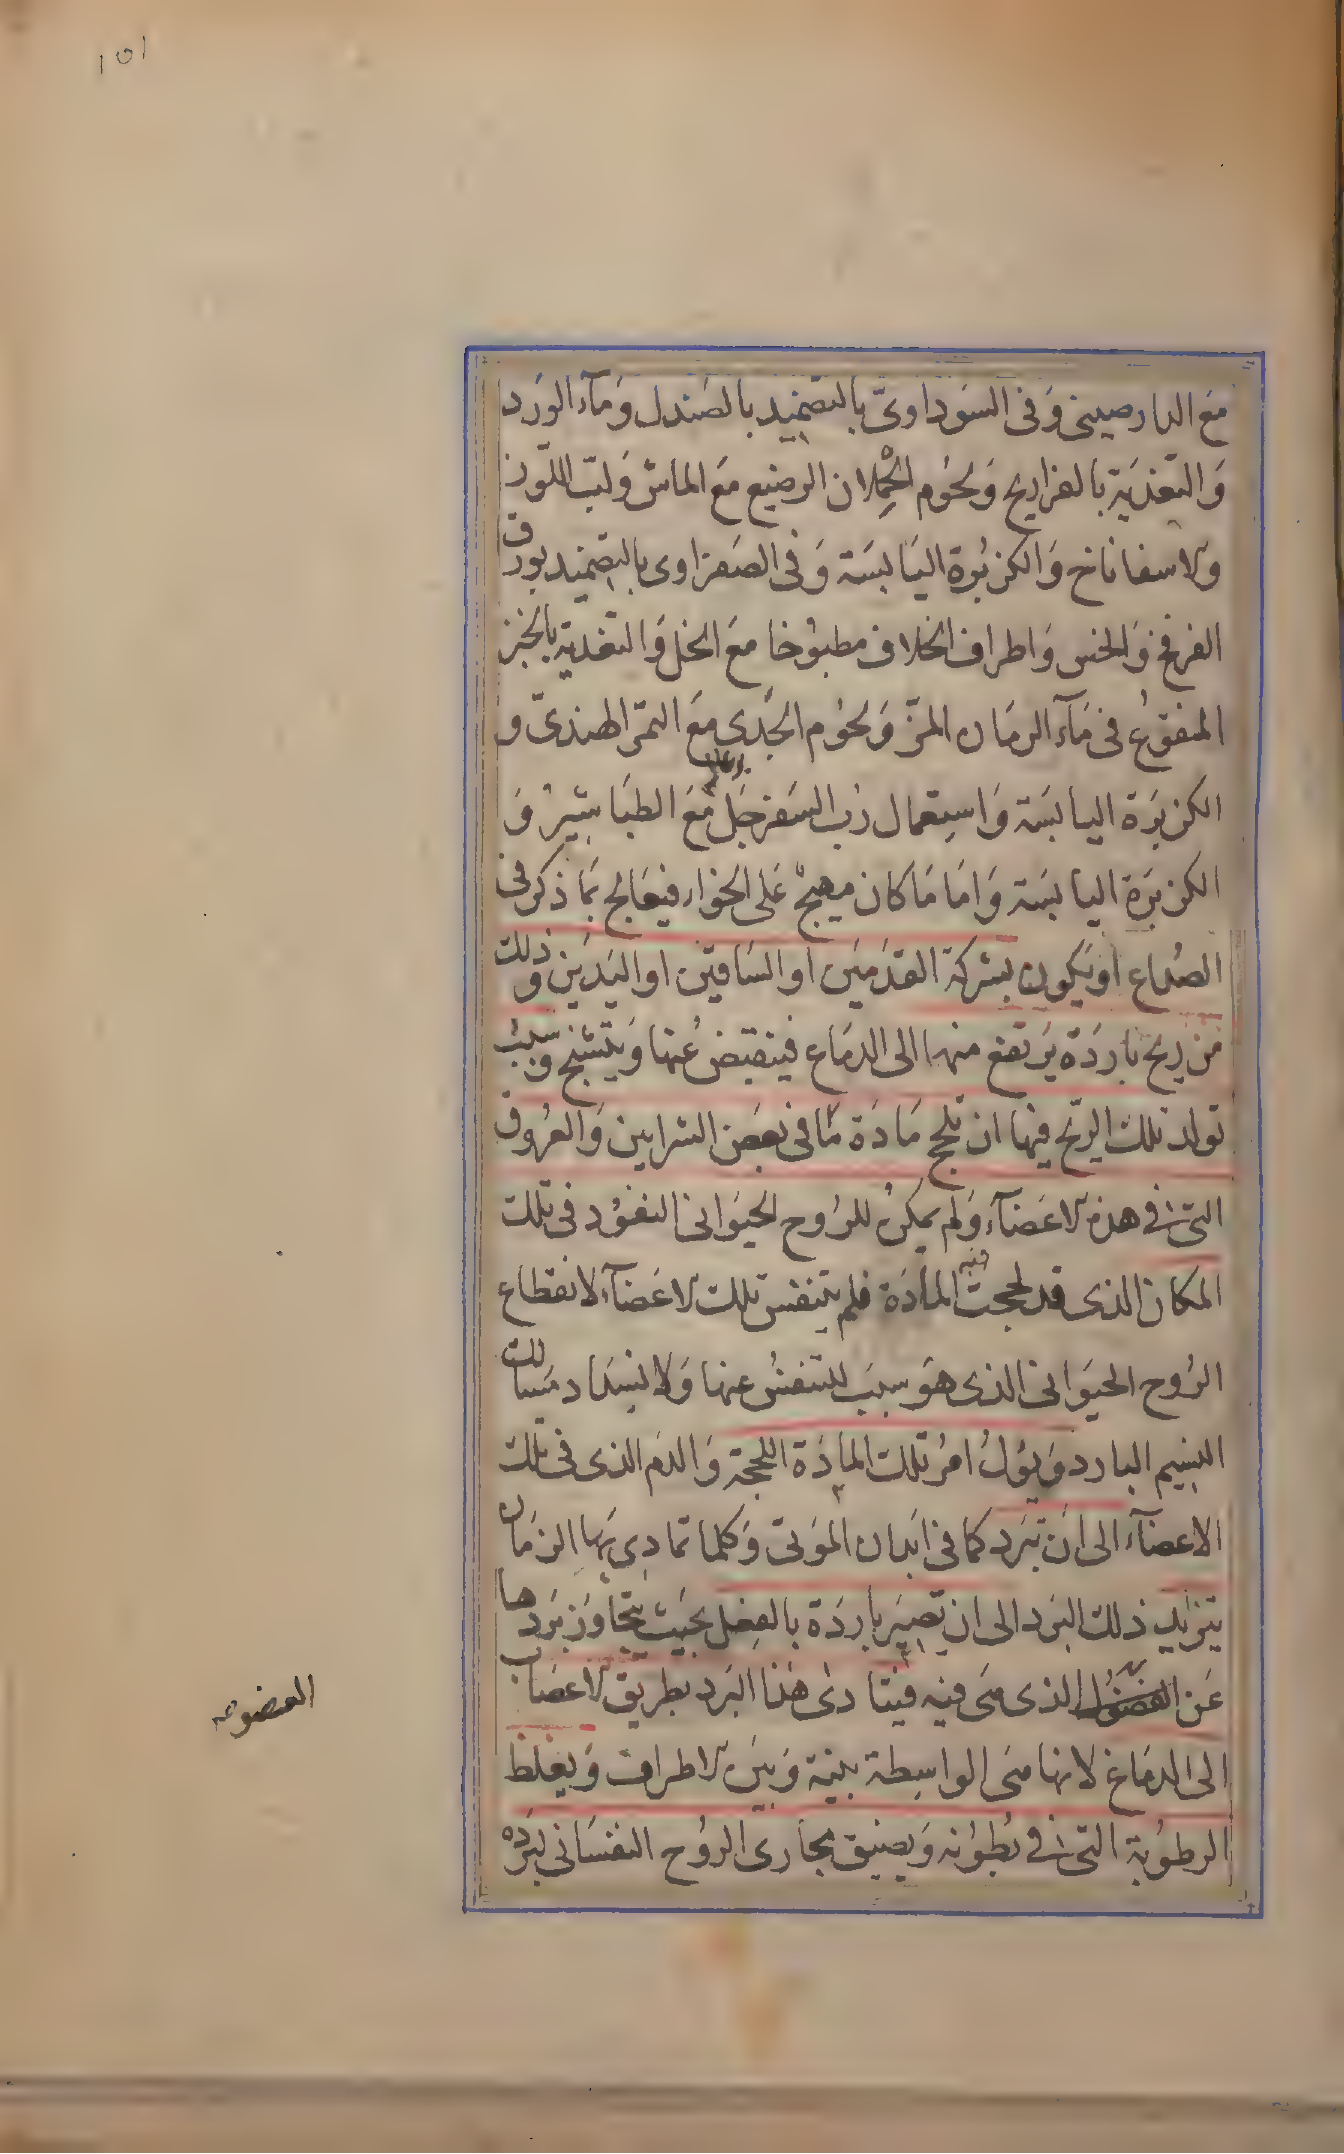 ١٥١
مَع الدارصيني وَفى السَوداوىّ بالتضميد بالصَندل وَمآء الوَرد
وَالتغذيَة بالفراريح وَلحوُم الحُملان الرضيع مَع الماش وَلبّ اللوَز
وَالاسفاناخ وَالكزبُرة اليَابسَة وَفى الصَفراوى بالتضميد بورق
الفرفخ وَالخس وَاطراف الخلاف مطبوُخا مَع الخل وَالتغذية بالخبز
المنقوع فى مَآء الرمَان المزّ وَلحوُم الجَدى مَع التمر الهندىّ و
الكزبرَة اليابسَة وَاستعمال رُب السَفرجَل مَع الطبَاشير وَ
الكزبرَة اليابسَة وَامَا مَا كان مهيج عَلى الخواء فيعَالج بمَا ذكر فى
الصُداع اويكون بشركة القدَميَن او السَاقيَن او اليَديَن وذلك
من ريح باردَة يَرتفع منها الى الدمَاغ فينقبض عنها وَيتشنج وَسبب
تولد تلك الريّح فيها ان تلحج مَادَة مَا فى بعَض الشرايين وَالعرُوق
التى فى هذه الاعَضآء وَلم يمكن للرُوح الحيَوانى النفوُد فى تلك
المكان الذى قد لححت فيه المادَة فلم يتنفس تلك الاعَضآء لانقطاع
الرُوح الحيَوانى الذى هوَ سبَب للتنفسُ عنها وَلانسدَاد مسَالك
النسيم البارد وَيؤلُ امرُ تلك المادَة اللحجة وَالدم الذى فى تلك
الاعضآء الى ان تبَرد كما فى ابدان الموَتى وَكلما تمادى بها الزمَان
يتزايد ذلك البَرد الى ان تصيَر باردَة بالفعل بحيَث يتجاوَز بَردها
عَن الذى هى فيه فيتادى هذا البَرد بطريق الاعصَاب
الى الدمَاغ لانها هى الواسِطة بينه وَبيَن الاطراف وَيغلظ
الرطوُبة التى فى بُطوُنه وَيضيق مجارى الروُح النفسَانى لبرَده
العضو صح